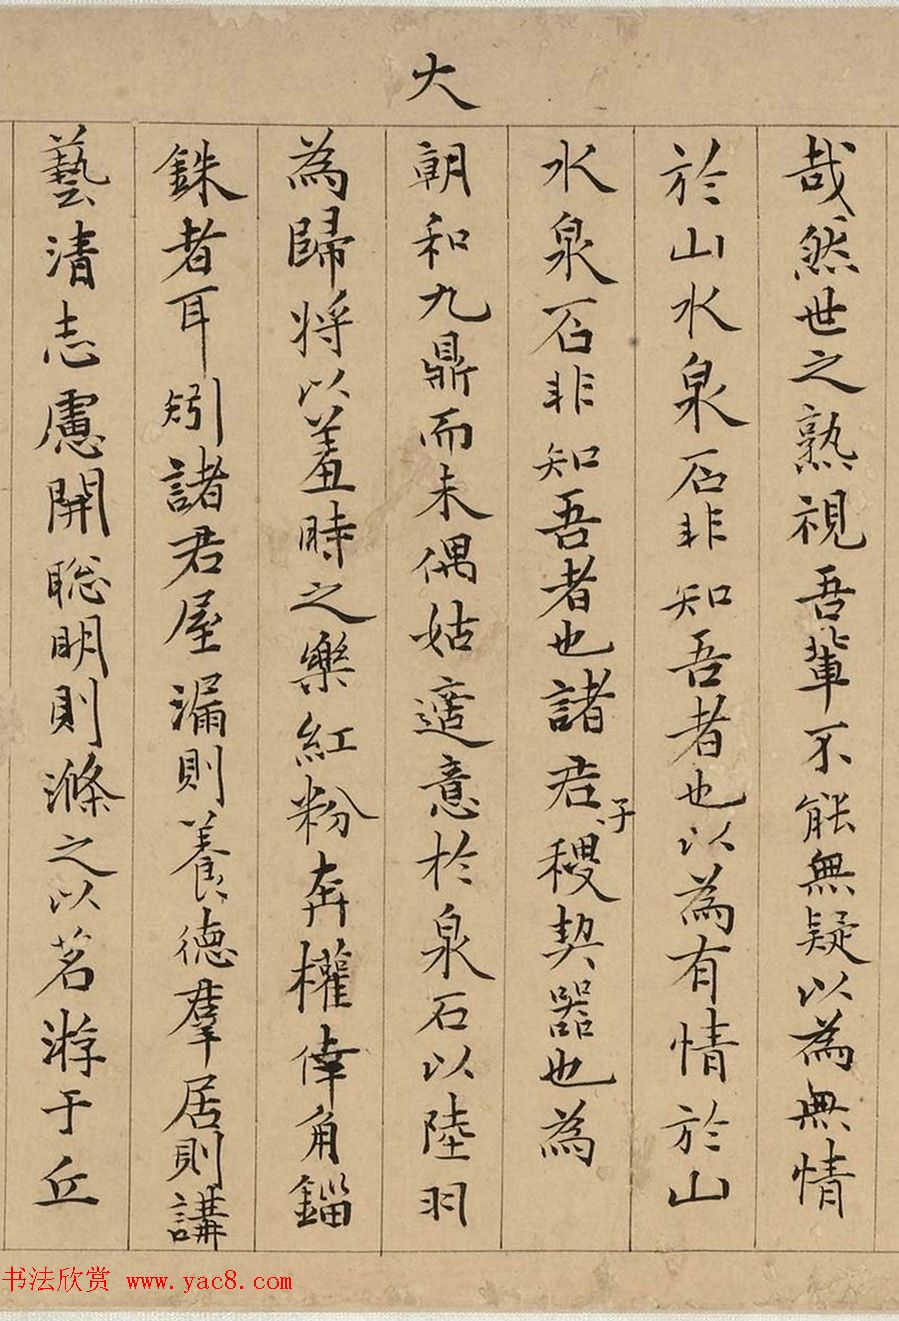 哉然世之熟視吾輩不能無疑以為無情
於山水泉石非知吾者也以為有情於山
水泉石非知吾者也諸君子稷契器也為
大朝和九鼎而未偶姑適意於泉石以陸羽
為歸将以羞時之樂紅粉奔權倖角錙
銖者耳矧諸君屋漏則養德羣居則講
藝清志慮開聪明則滌之以茗游于丘
书法欣赏 www.yac8.com